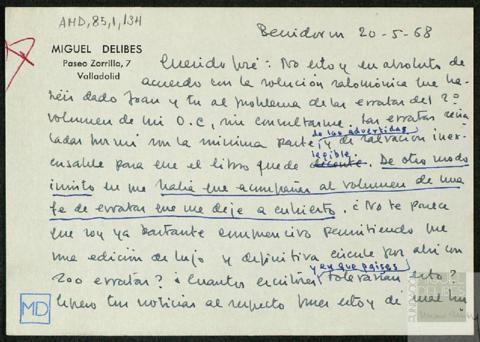 AMD, 85, 1, 134
MIGUEL DELIBES
Paseo Zorrilla, 7
Valladolid
Benidorm 20-5-68
Querido José: No estoy en absoluto de
acuerdo con la solución salomónica que ha-
béis dado Joan y tu al problema de las erratas del 2º
volumen de mi O.C, sin consultarme. Las erratas seña-
ladas por mi son la mínima parte de las advertidas y de salvación inex-
cusable para que el libro quede legible. De otro modo
insisto en que habia que acompañar al volumen de una
fe de erratas que me deje a cubierto. ¿No te parece
que soy ya bastante comprensivo permitiendo que
una edición de lujo y definitiva circule por ahi con
200 erratas? ¿Cuantos escritores y en que paises tolerarían esto?
Espero tus noticias al respecto pues estoy de mal hu
MD
FUNDACIÓN
MIGUEL
DELIBES